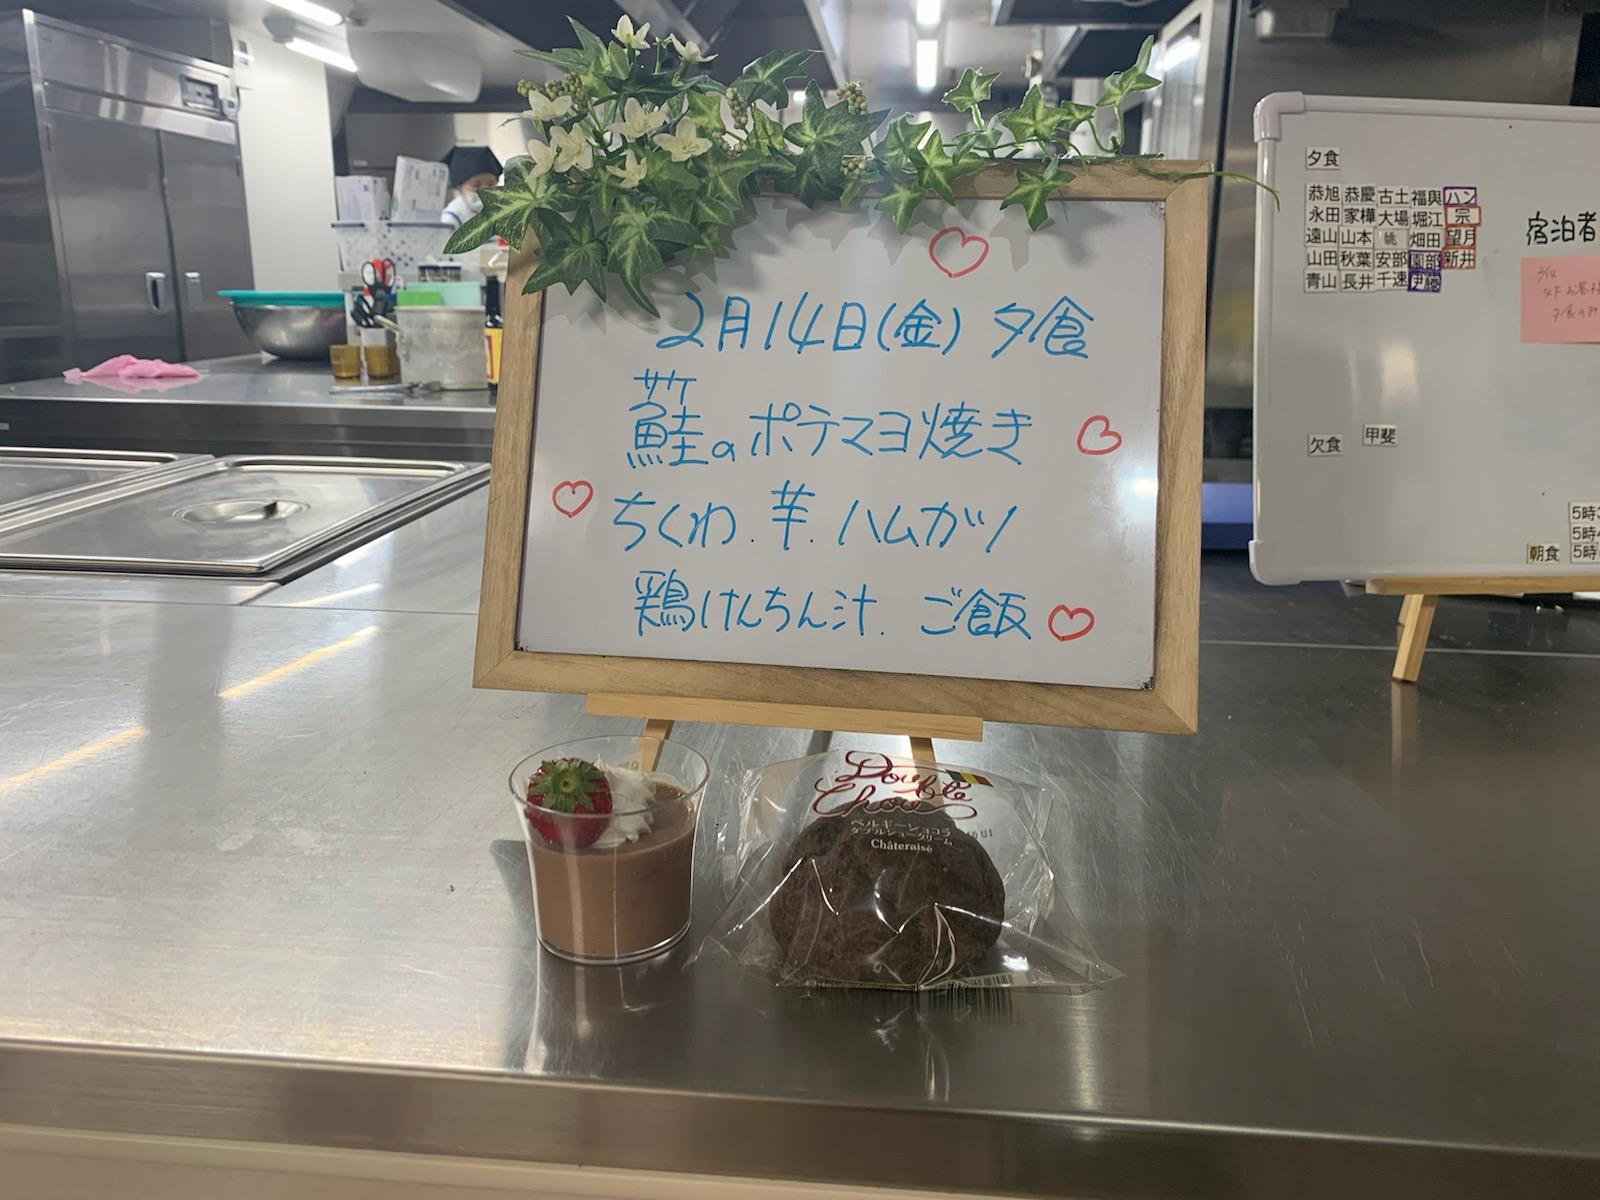 2月14日(金) 夕食
サケ
鮭のポテマヨ焼き
ちくわ.芋.ハムカツ
鶏けんちん汁. ご飯
Double
Chou
ベルギーショコラ
ダブルシュークリーム
Châteraisé
夕食
恭旭 恭慶 古土 福與 ハン
永田 家樺 大場 堀江 宗
遠山 山本 姚 畑田 望月
山田 秋葉 安部 園部 新井
青山 長井 千速 伊藤
欠食 甲斐
宿泊者
朝食
5時
5時
5時